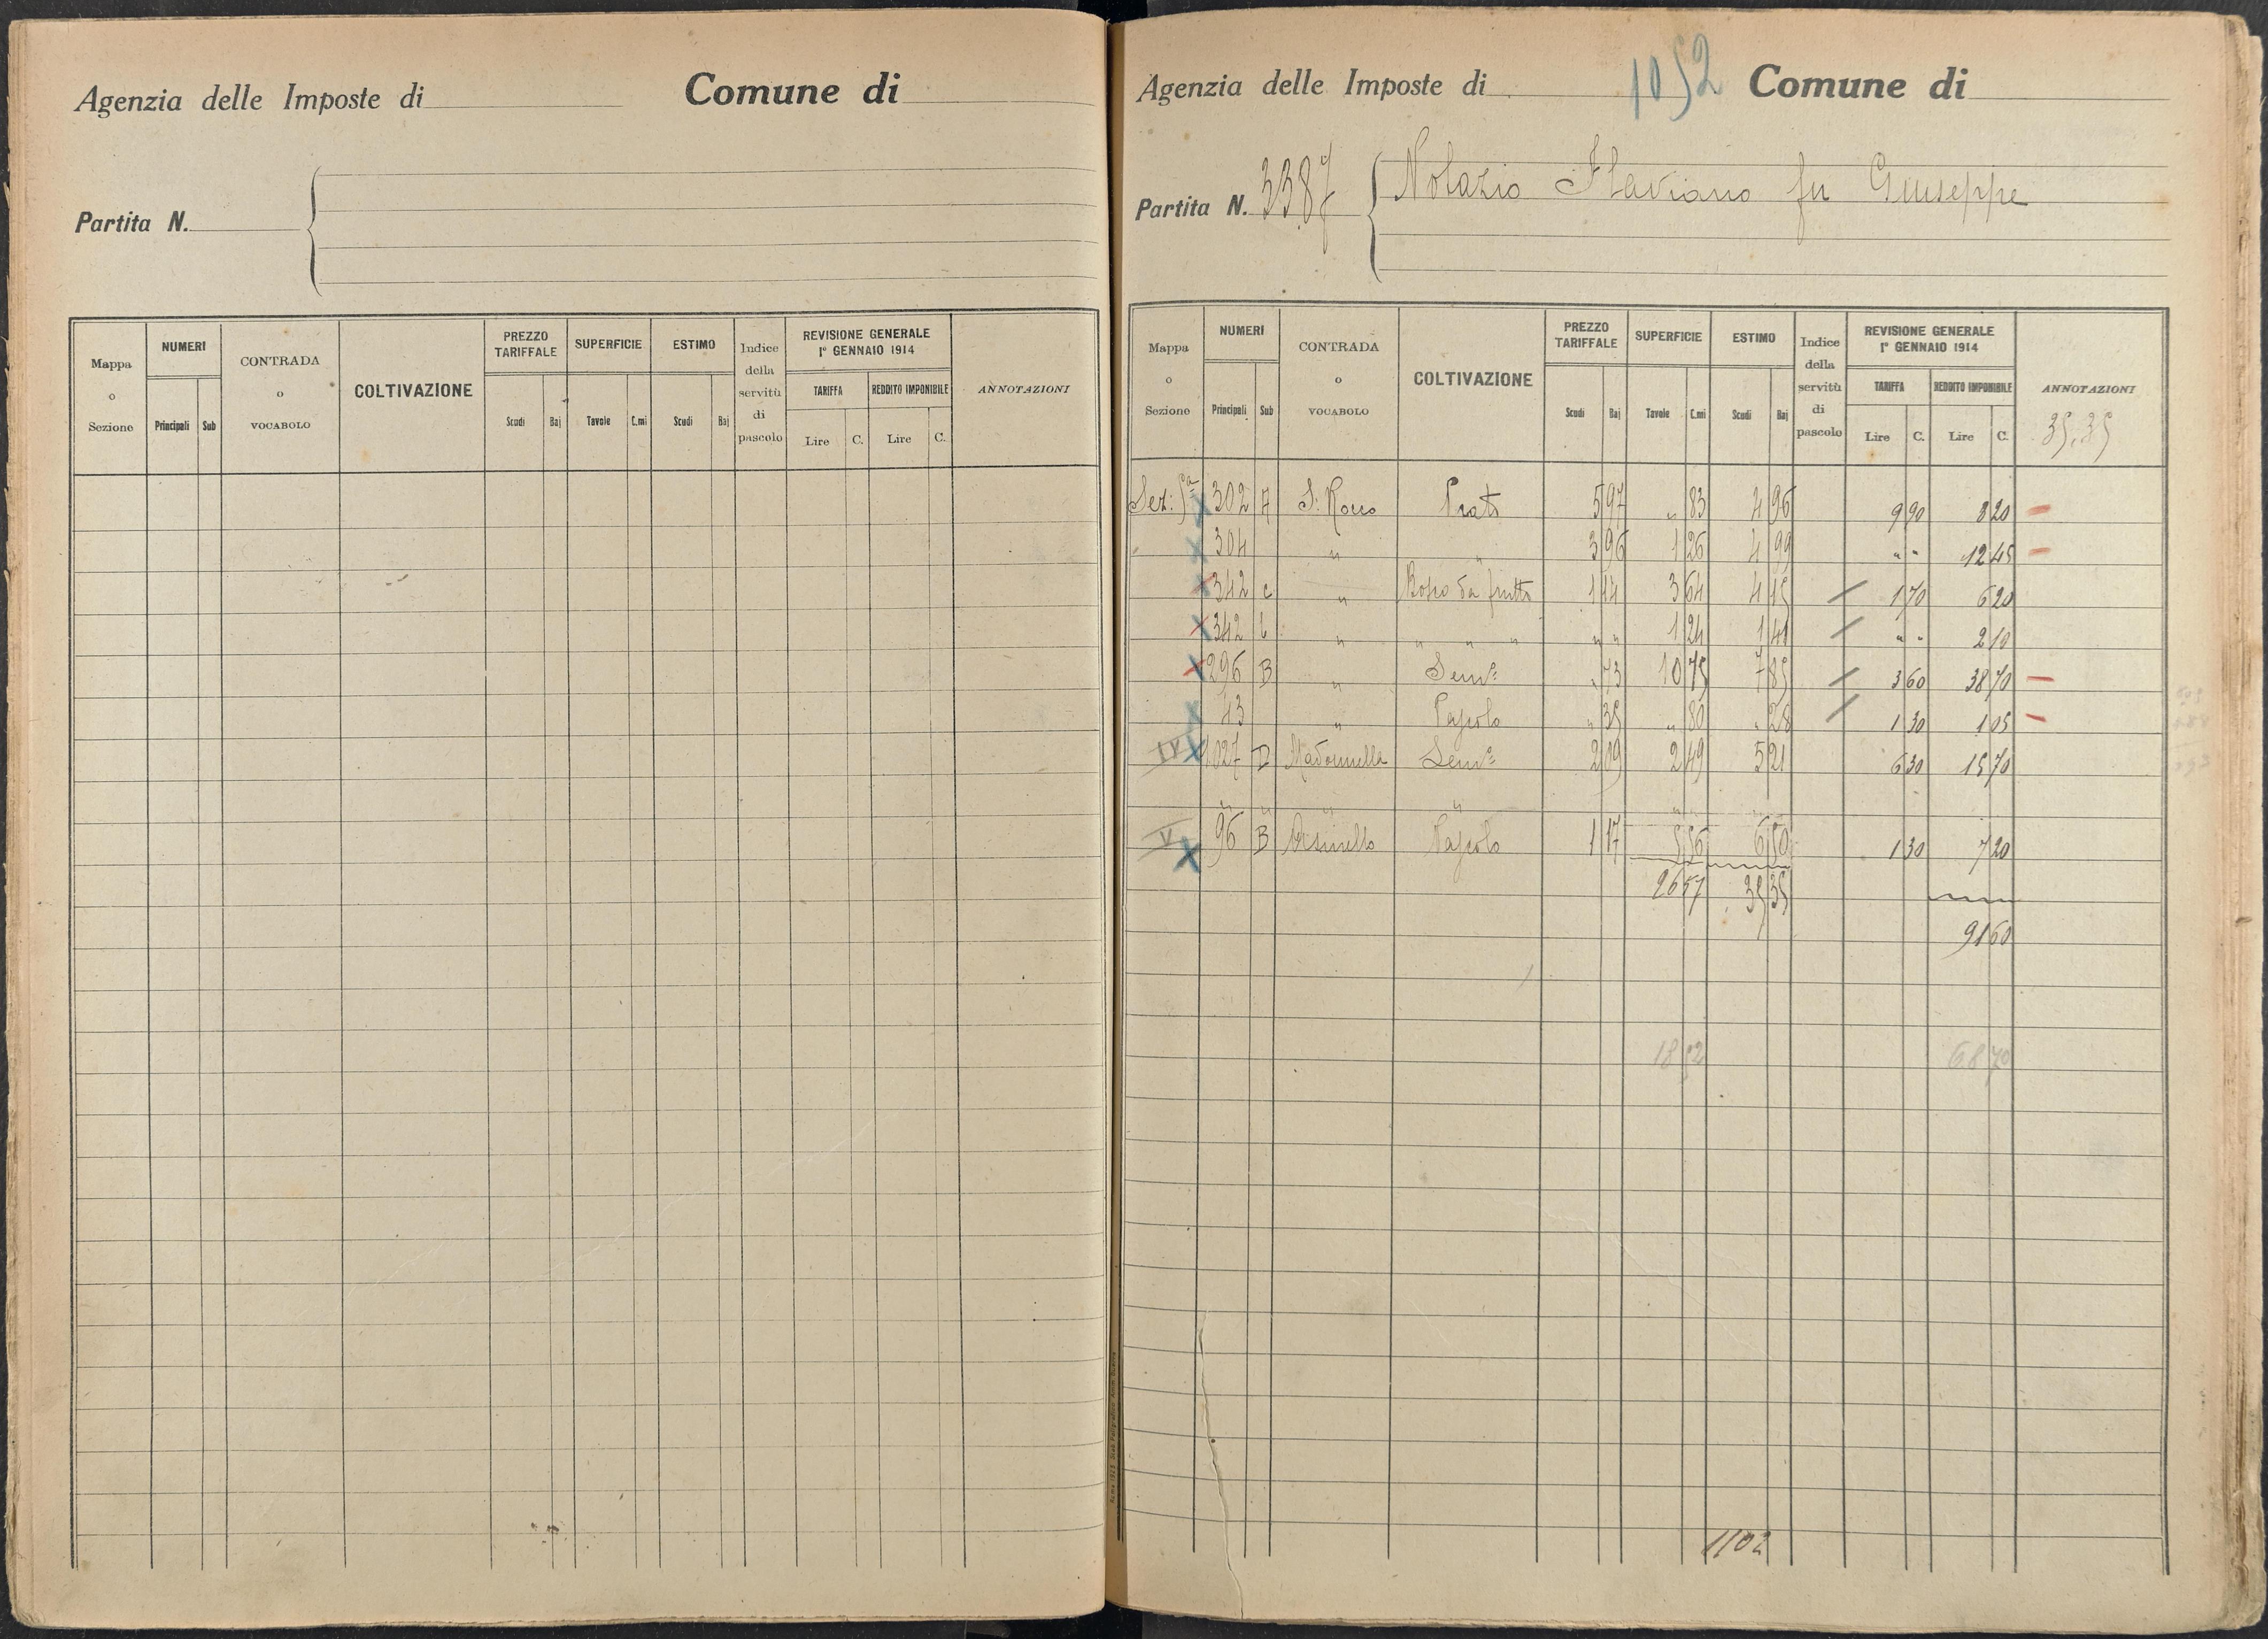 Agenzia delle Imposte di Comune di
Partita N.
Mappa o Sezione NUMERI Principali Sub CONTRADA o VOCABOLO COLTIVAZIONE PREZZO TARIFFALE Scudi Baj SUPERFICIE Tavole C.mi ESTIMO Scudi Baj Indice della servitù di pascolo REVISIONE GENERALE 1° GENNAIO 1914 TARIFFA Lire C. REDDITO IMPONIBILE Lire C. ANNOTAZIONI
Agenzia delle Imposte di 1052 Comune di
Partita N. 3387 Nolazio Flaviano fu Giuseppe
Mappa o Sezione NUMERI Principali Sub CONTRADA o VOCABOLO COLTIVAZIONE PREZZO TARIFFALE Scudi Baj SUPERFICIE Tavole C.mi ESTIMO Scudi Baj Indice della servitù di pascolo REVISIONE GENERALE 1° GENNAIO 1914 TARIFFA Lire C. REDDITO IMPONIBILE Lire C. ANNOTAZIONI
35,35
Sez: 5ª 302 A S. Rocco Prato 5 97 " 83 4 96 9 90 8 20
304 " " 3 96 1 26 4 99 " " 12 45
342 c " Bosco da frutto 1 14 3 64 4 15 1 70 6 20
342 b " " " " " " 1 24 1 41 " " 2 10
296 B " Semº " 73 10 75 7 85 3 60 38 70
43 " Pascolo " 35 " 80 " 28 1 30 1 05
IV 1027 D Madonnella Semº 2 09 2 49 5 21 6 30 15 70
" " " " " "
V 96 B Pascolo 1 17 5 56 6 50 1 30 7 20
26 57 35 35
91 60
18 52 68 70
1102